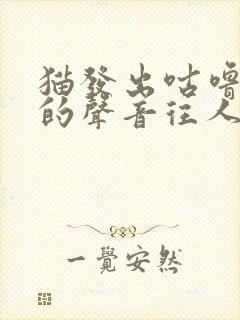 猫發出咕嚕
的聲音往人
一覺安然